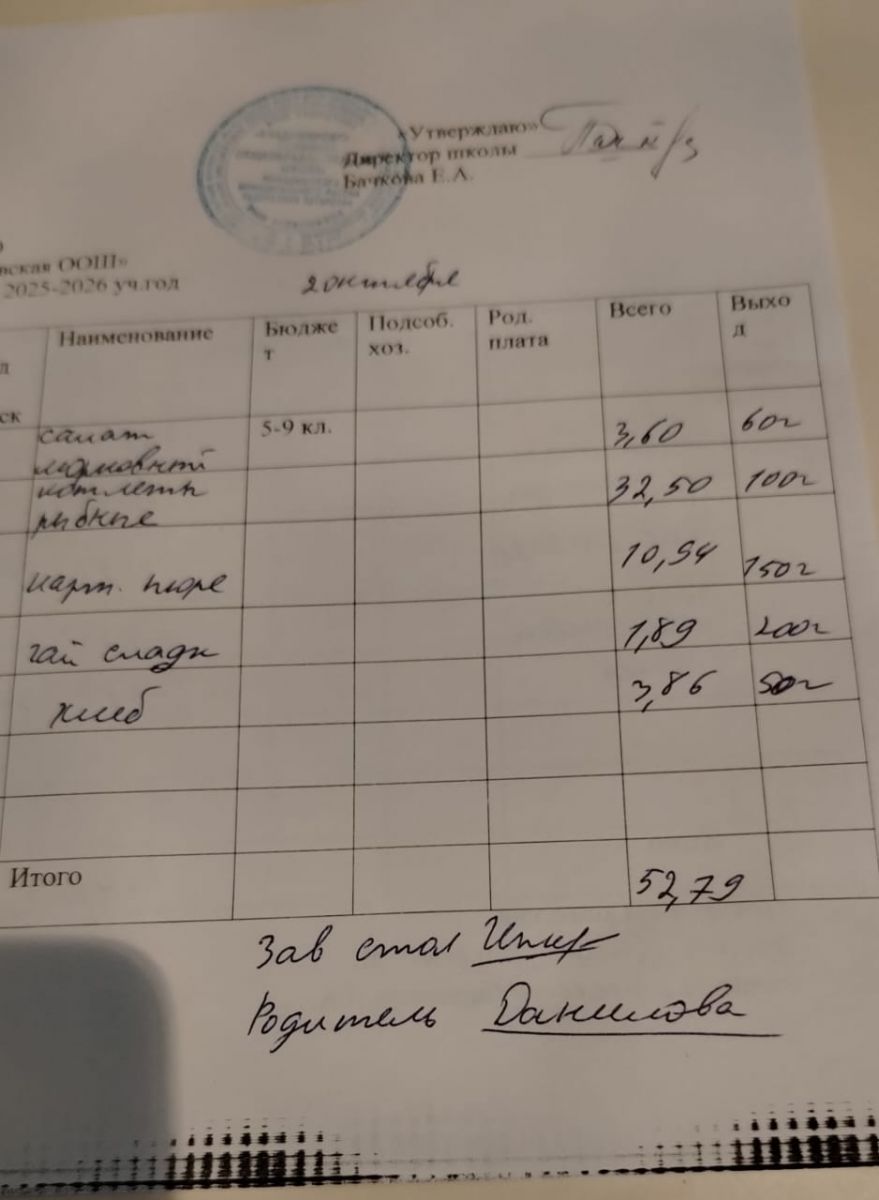 «Утверждаю»
Директор школы
Бачкова Е.А.
вская ООШ»
2025-2026 уч.год
2 октября
Наименование Бюдже Подсоб. Род. Всего Выхо
т хоз. плата д
ск
салат 5-9 кл. 3,60 60г
морковный
котлеты 32,50 100г
рыбные
карт. пюре 10,94 150г
чай сладк 1,89 200г
хлеб 3,86 50г
Итого 52,79
Зав стол
Родитель Данилова